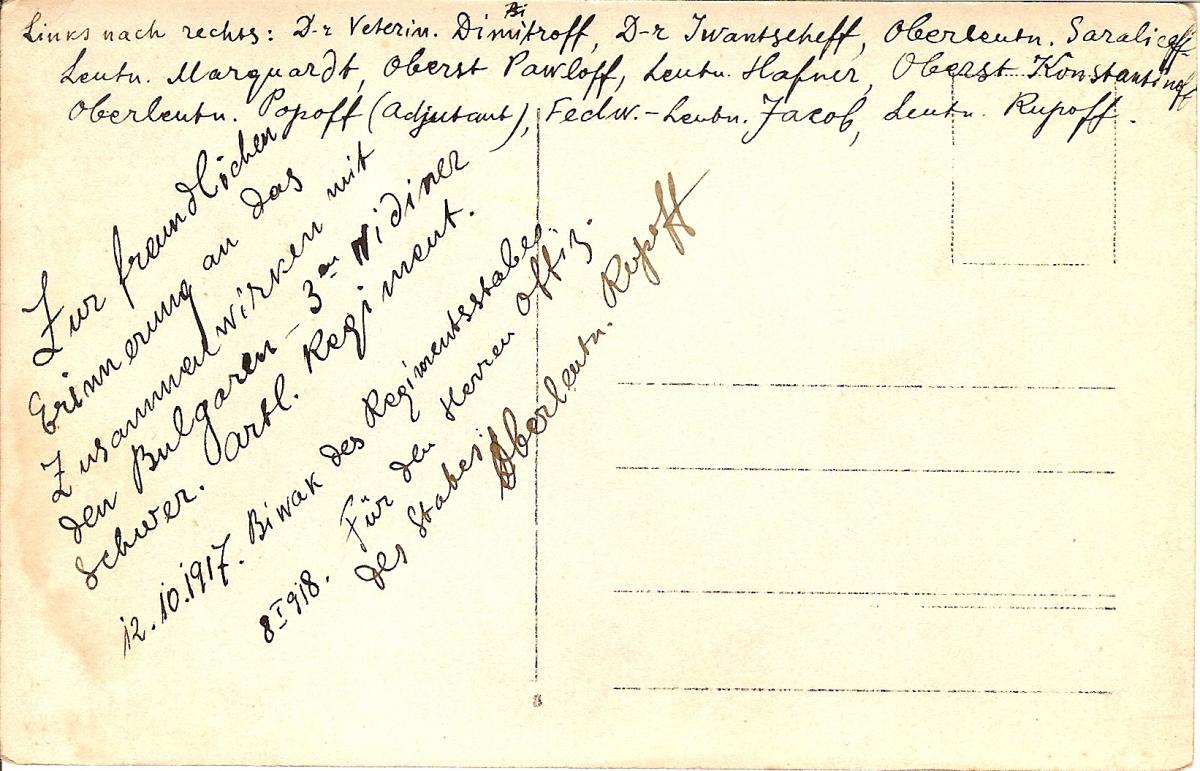 Links nach rechts: D-r Veterin. Dimitroff, D-r Iwantscheff, Oberleutn. Saralieff
Leutn. Marquardt, Oberst Pawloff, Leutn. Hafner, Oberst Konstantinoff
Oberleutn. Popoff (Adjutant), Feldw.-Leutn. Jacob, Leutn. Rupoff.
Zur freundlichen
Erinnerung an das
Zusammenwirken mit
den Bulgaren - 3-en Widiner
schwer. Artl. Regiment.
12.10.1917. Biwak des Regimentsstabes.
8 I 918. Für den Herren Offiz.
des Stabes:
Oberleutn. Rupoff